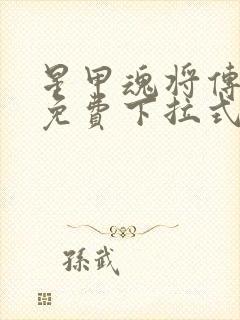 星甲魂将傳
免費下拉式
孫武